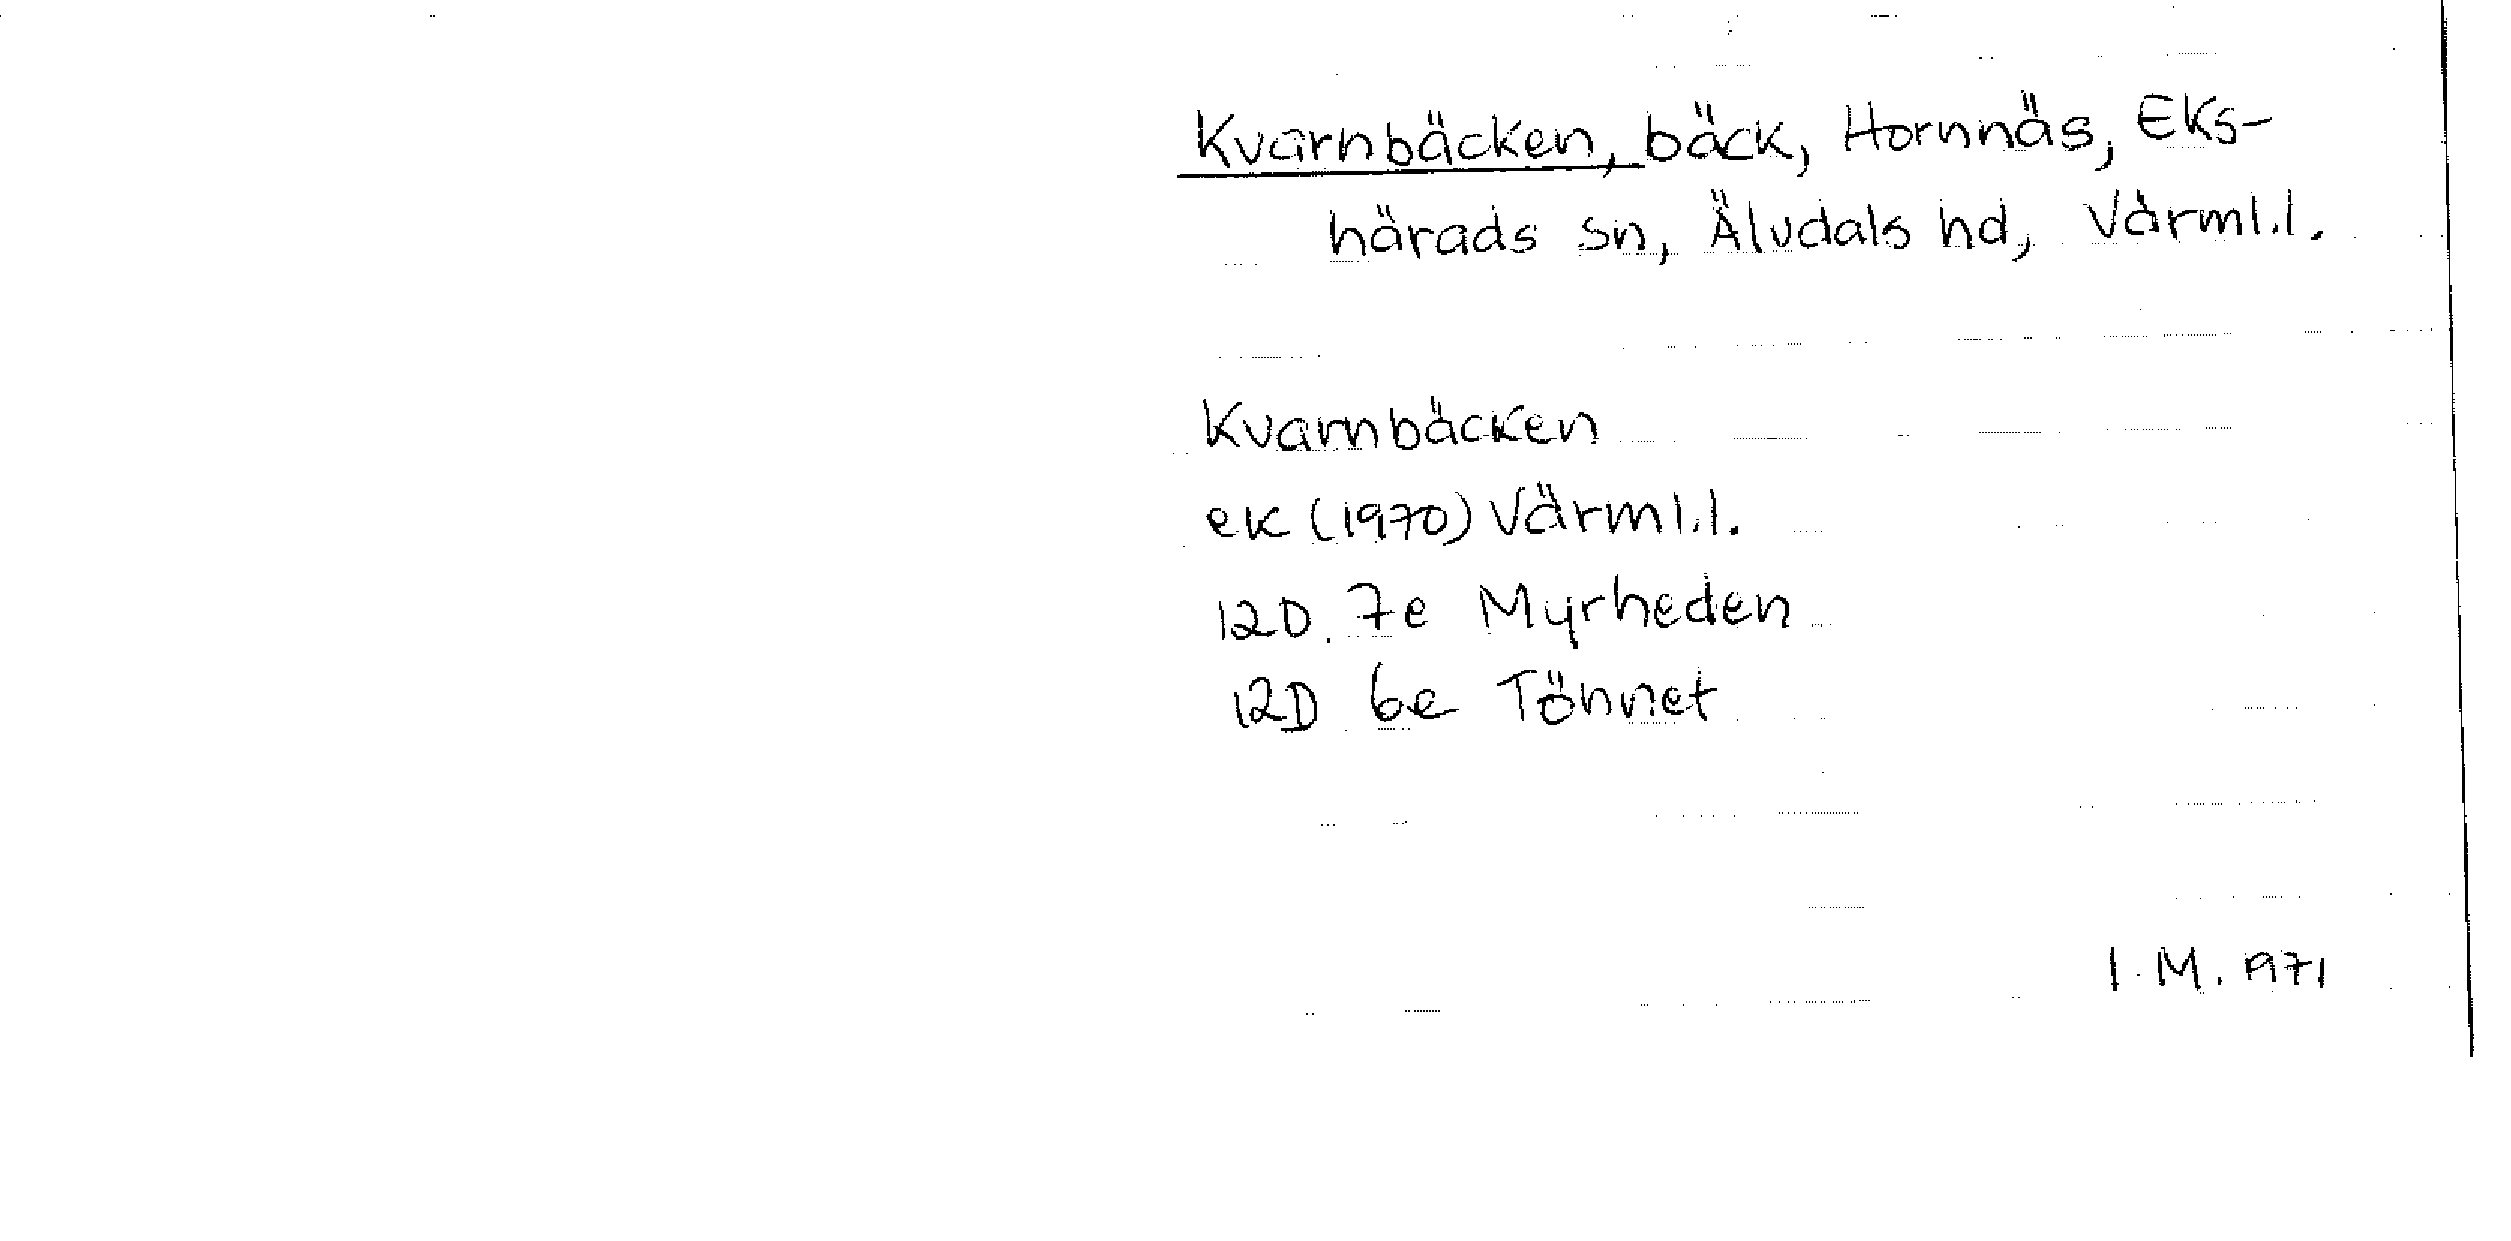 Kvarnbäcken, bäck, Hornnäs, Eks-
härads sn, Älvdals hd, Värml.l.
Kvarnbäcken
ek (1970) Värml.l.
12D. 7e Myrheden
12D 6e Tönnet
I.M. 1971